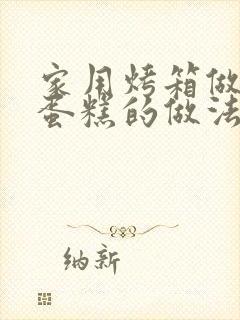 家用烤箱做
蛋糕的做法
纳新